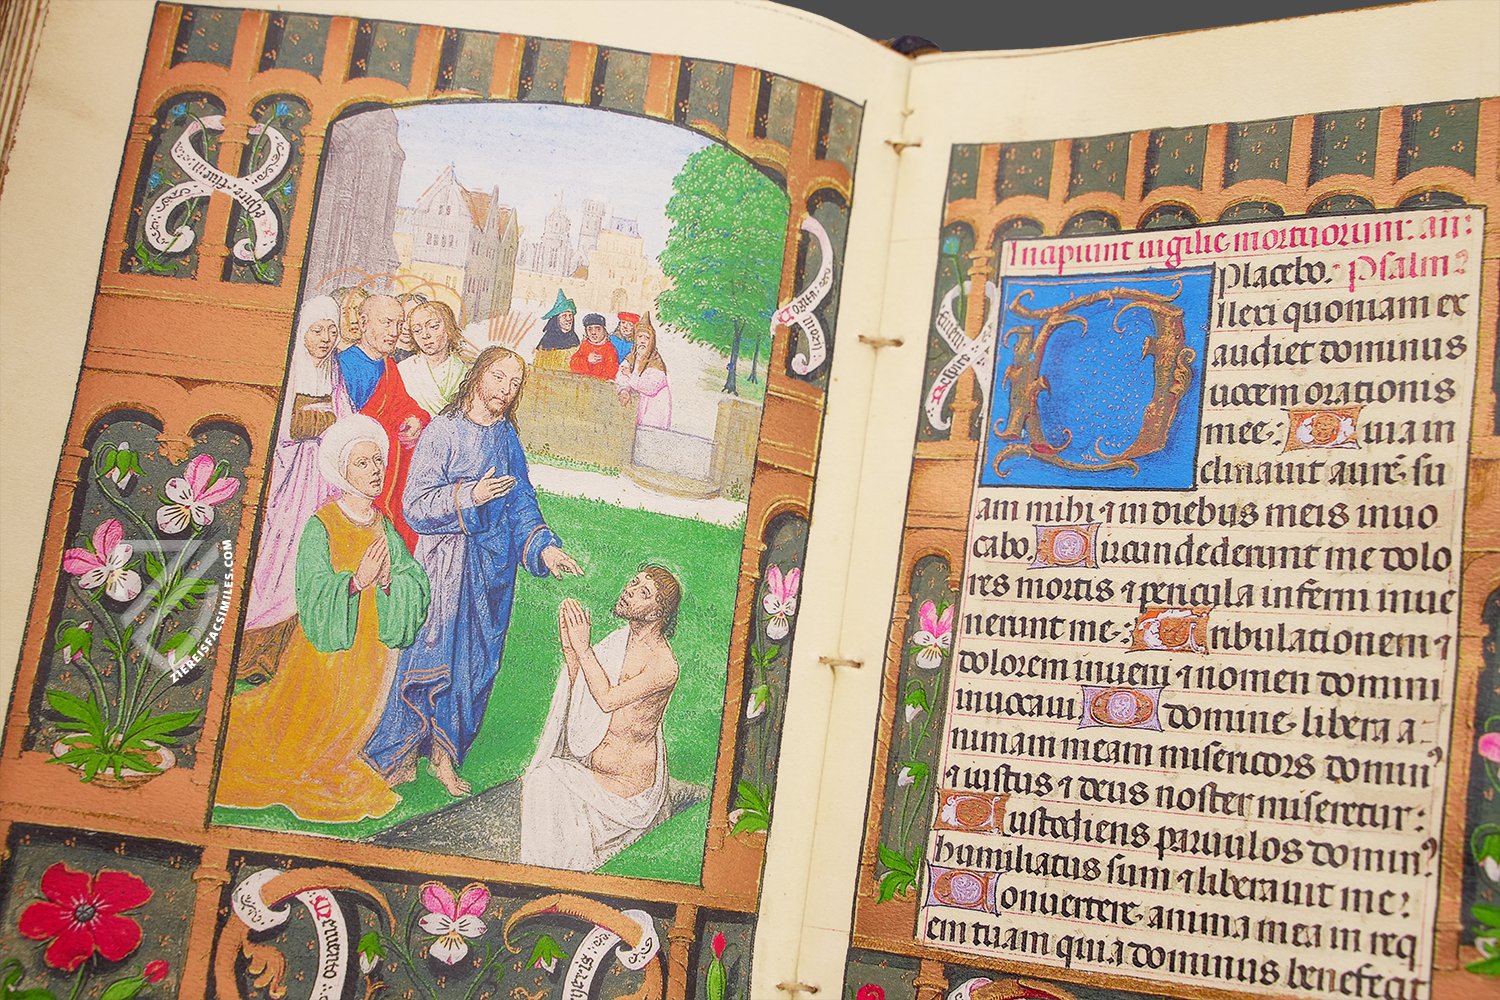 Memento
ZIEREISFACSIMILES.COM
Incipiunt vigilie mortuorum: an:
Placebo. Psalm
ilexi quoniam ex
audiet dominus
vocem orationis
mee: Quia in
clinauit aurē su
am mihi ⁊ in diebus meis inuo
cabo. Circundederunt me dolo
res mortis ⁊ pericula inferni inue
nerunt me: Tribulationem ⁊
dolorem inueni ⁊ nomen domini
inuocaui. O domine libera a
nimam meam misericors domin⁹
⁊ iustus ⁊ deus noster miseretur:
Custodiens paruulos domin⁹
humiliatus sum ⁊ liberauit me:
Conuertere anima mea in req
em tuam quia dominus benefecit